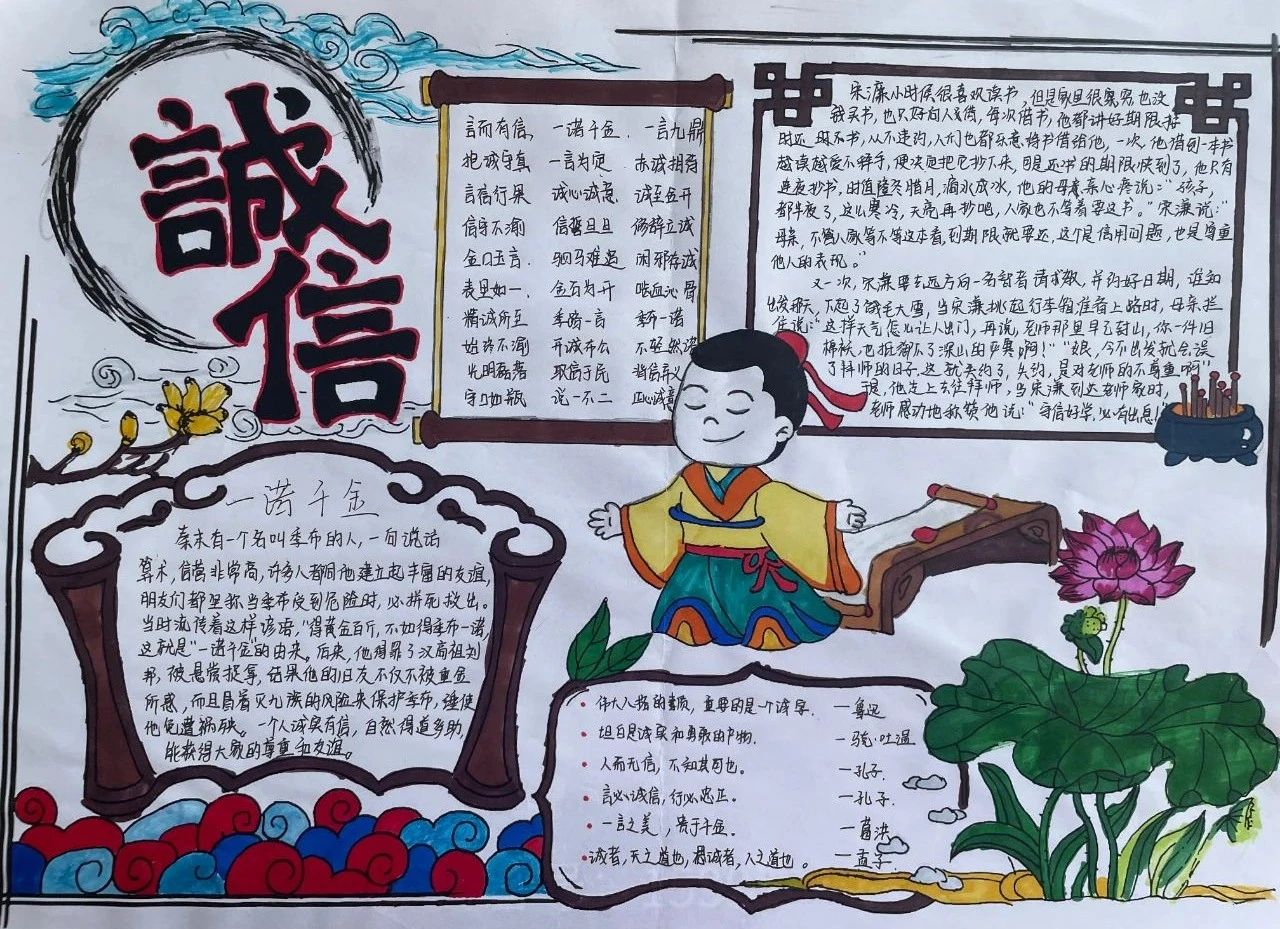 誠信
言而有信 一诺千金 一言九鼎
抱诚守真 一言为定 赤诚相角
言信行果 诚心诚意 诚至金开
信守不渝 信誓旦旦 修辞立诚
金口玉言 驷马难追 闲邪存诚
表里如一 金石为开 啮血沁骨
精诚所至 季路一言 季布一诺
始终不渝 开诚布公 不轻然诺
光明磊落 取信于民 背信弃义
守口如瓶 说一不二 正心诚意
宋濂小时候很喜欢读书,但是家里很穷,也没
钱买书,也只好向人家借,每次借书,他都讲好期限,按
时还书,从不违约,人们也都乐意将书借给他,一次,他借到一本书
越读越爱不释手,便决定把它抄下来,可是还书的期限快到了,他只有
连夜抄书,时值隆冬腊月,滴水成冰,他的母亲心疼说:“孩子,
都半夜了,这么寒冷,天亮再抄吧,人家也不等着要这书。”宋濂说:“
母亲,不管人家等不等这本看,到期限就要还,这个是信用问题,也是尊重
他人的表现。”
又一次,宋濂要去远方向一名智者请求教,并约好日期,谁知
出发那天,下起了鹅毛大雪,当宋濂挑起行李箱准备上路时,母亲拦
住说:“这样天气怎么让人出门,再说,老师那里早已封山,你一件旧
棉袄,也抵御不了深山的严寒啊!”“娘,今不出发就会误
了拜师的日子,这就失约了,失约,是对老师的不尊重啊”
他走上去往拜师,当宋濂到达老师家时,
老师感动地称赞他说:“守信好学,必有出息!
一诺千金
秦末有一个名叫季布的人,一句说话
算术,信誉非常高,许多人都同他建立起丰富的友谊,
朋友们都坚称当季布受到危险时,必拼死救出。
当时流传着这样谚语,“得黄金百斤,不如得季布一诺,
这就是“一诺千金”的由来。后来,他得罪了汉高祖刘
邦,被悬赏捉拿,结果他的旧友不仅不被重金
所惑,而且冒着灭九族的风险来保护季布,难使
他免遭祸殃。一个人诚实有信,自然得道多助,
能获得大家的尊重和友谊。
伟大人格的素质,重要的是一个诚字。 —鲁迅
坦白是诚实和勇敢的产物。 —马克·吐温
人而无信,不知其可也。 —孔子
言必诚信,行必忠正。 —孔子
一言之美,贵于千金。 —葛洪
诚者,天之道也,思诚者,人之道也。 —孟子